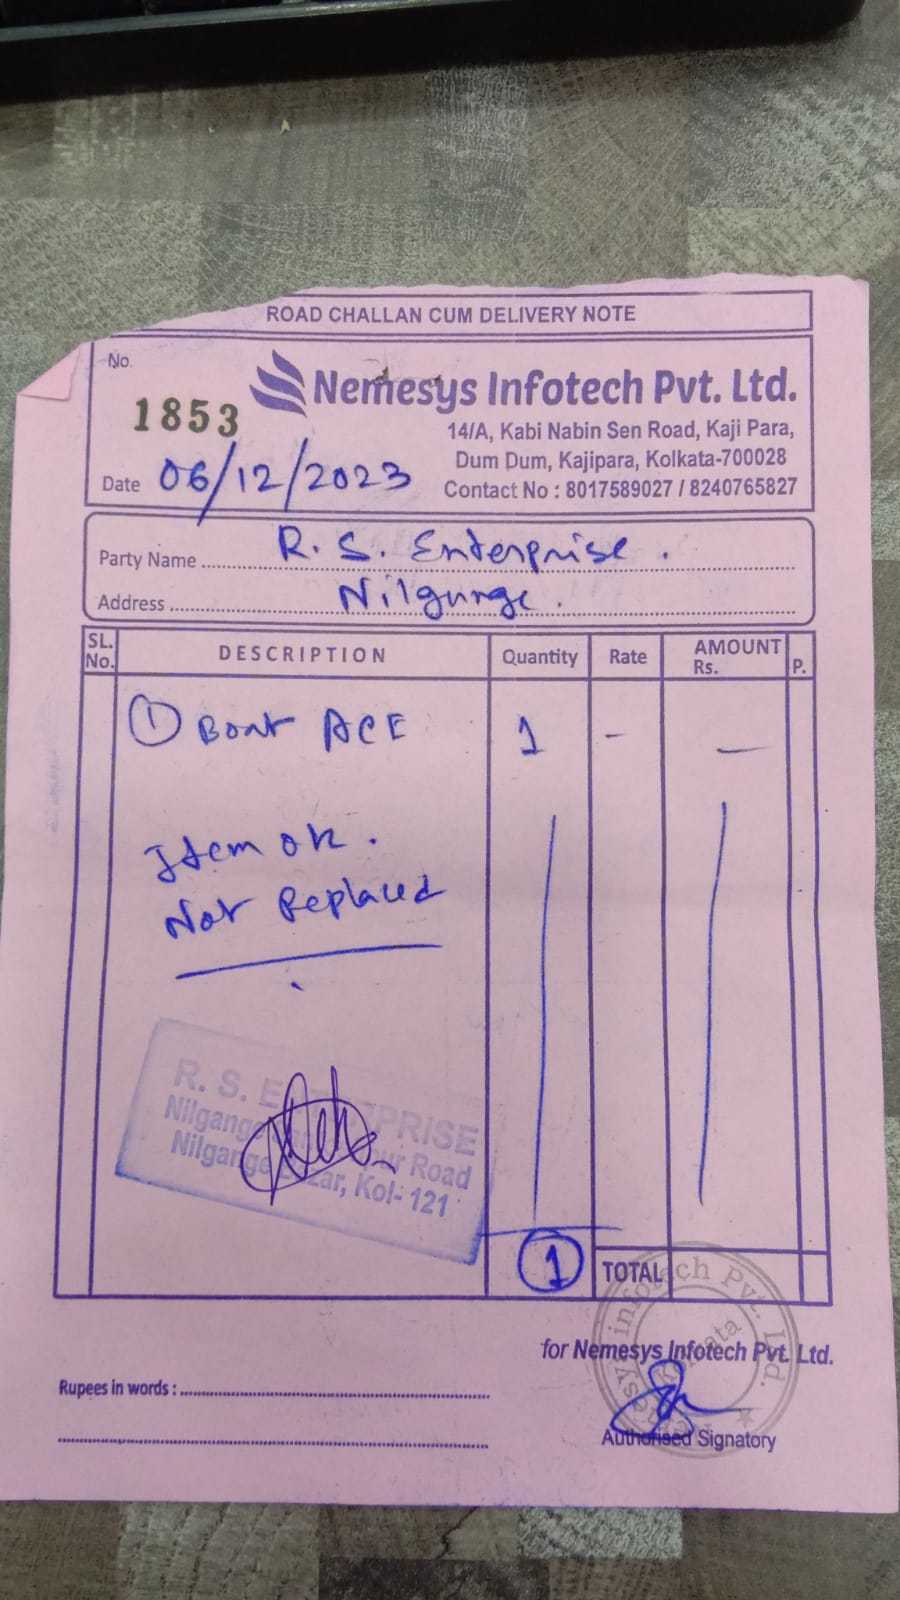 ROAD CHALLAN CUM DELIVERY NOTE
No.
1853
Nemesys Infotech Pvt. Ltd.
14/A, Kabi Nabin Sen Road, Kaji Para,
Dum Dum, Kajipara, Kolkata-700028
Date 06/12/2023
Contact No : 8017589027 / 8240765827
Party Name R. S. Enterprise.
Address Nilgunge.
SL. No. DESCRIPTION Quantity Rate AMOUNT Rs. P.
① Boat ACE 1 - -
Item ok.
Not Replaced
R. S. ENTERPRISE
Nilgange Road
Nilgange Bazar, Kol- 121
1 TOTAL
Nemesys Infotech Pvt. Ltd.
Kolkata
for Nemesys Infotech Pvt. Ltd.
Rupees in words :
Authorised Signatory